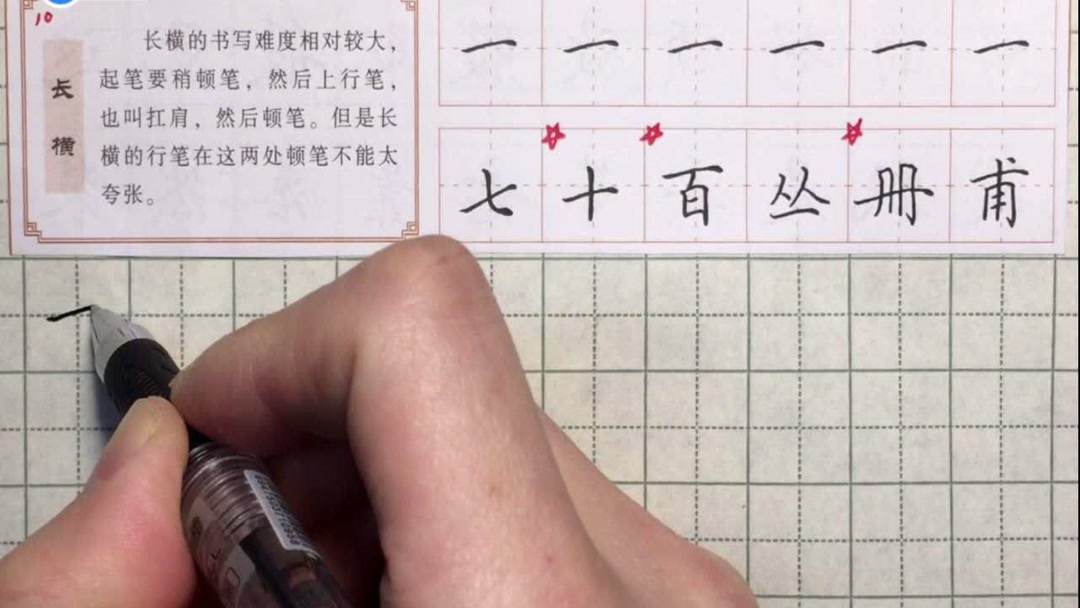 10
长横
长横的书写难度相对较大，
起笔要稍顿笔，然后上行笔，
也叫扛肩，然后顿笔。但是长
横的行笔在这两处顿笔不能太
夸张。
一 一 一 一 一 一
七 十 百 丛 册 甫